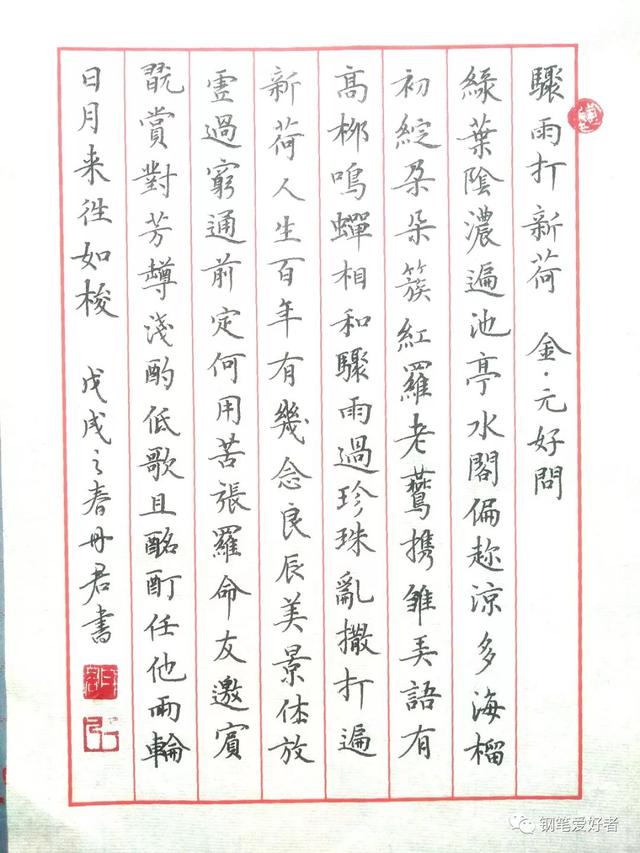 驟雨打新荷 金·元好問
緑葉陰濃遍池亭水閣偏趂涼多海榴
初綻朵朵簇紅羅老鷰携雛弄語有
高柳鳴蟬相和驟雨過珍珠亂撒打遍
新荷人生百年有幾念良辰美景休放
虛過窮通前定何用苦張羅命友邀賓
翫賞對芳罇淺酌低歌且酩酊任他兩輪
日月来往如梭 戊戌之春丹君書
钢笔爱好者